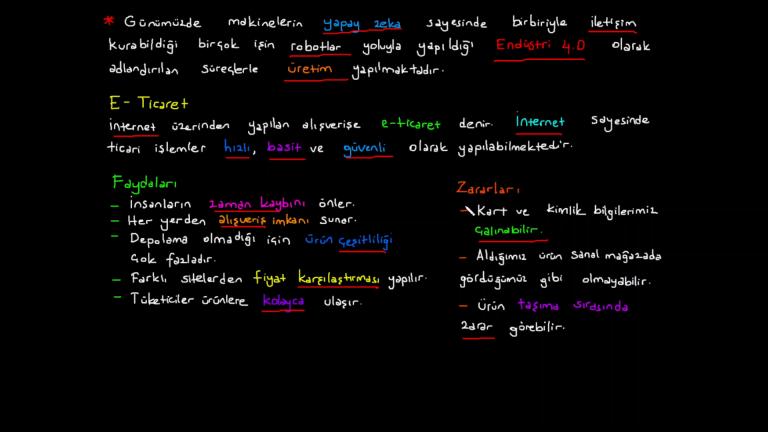 * Günümüzde makinelerin yapay zeka sayesinde birbiriyle iletişim
kurabildiği birçok işin robotlar yoluyla yapıldığı Endüstri 4.0 olarak
adlandırılan süreçlerle üretim yapılmaktadır.
E-Ticaret
İnternet üzerinden yapılan alışverişe e-ticaret denir. İnternet sayesinde
ticari işlemler hızlı, basit ve güvenli olarak yapılabilmektedir.
Faydaları
- İnsanların zaman kaybını önler.
- Her yerden alışveriş imkanı sunar.
- Depolama olmadığı için ürün çeşitliliği
çok fazladır.
- Farklı sitelerden fiyat karşılaştırması yapılır.
- Tüketiciler ürünlere kolayca ulaşır.
Zararları
- Kart ve kimlik bilgilerimiz
çalınabilir.
- Aldığımız ürün sanal mağazada
gördüğümüz gibi olmayabilir.
- Ürün taşıma sırasında
zarar görebilir.